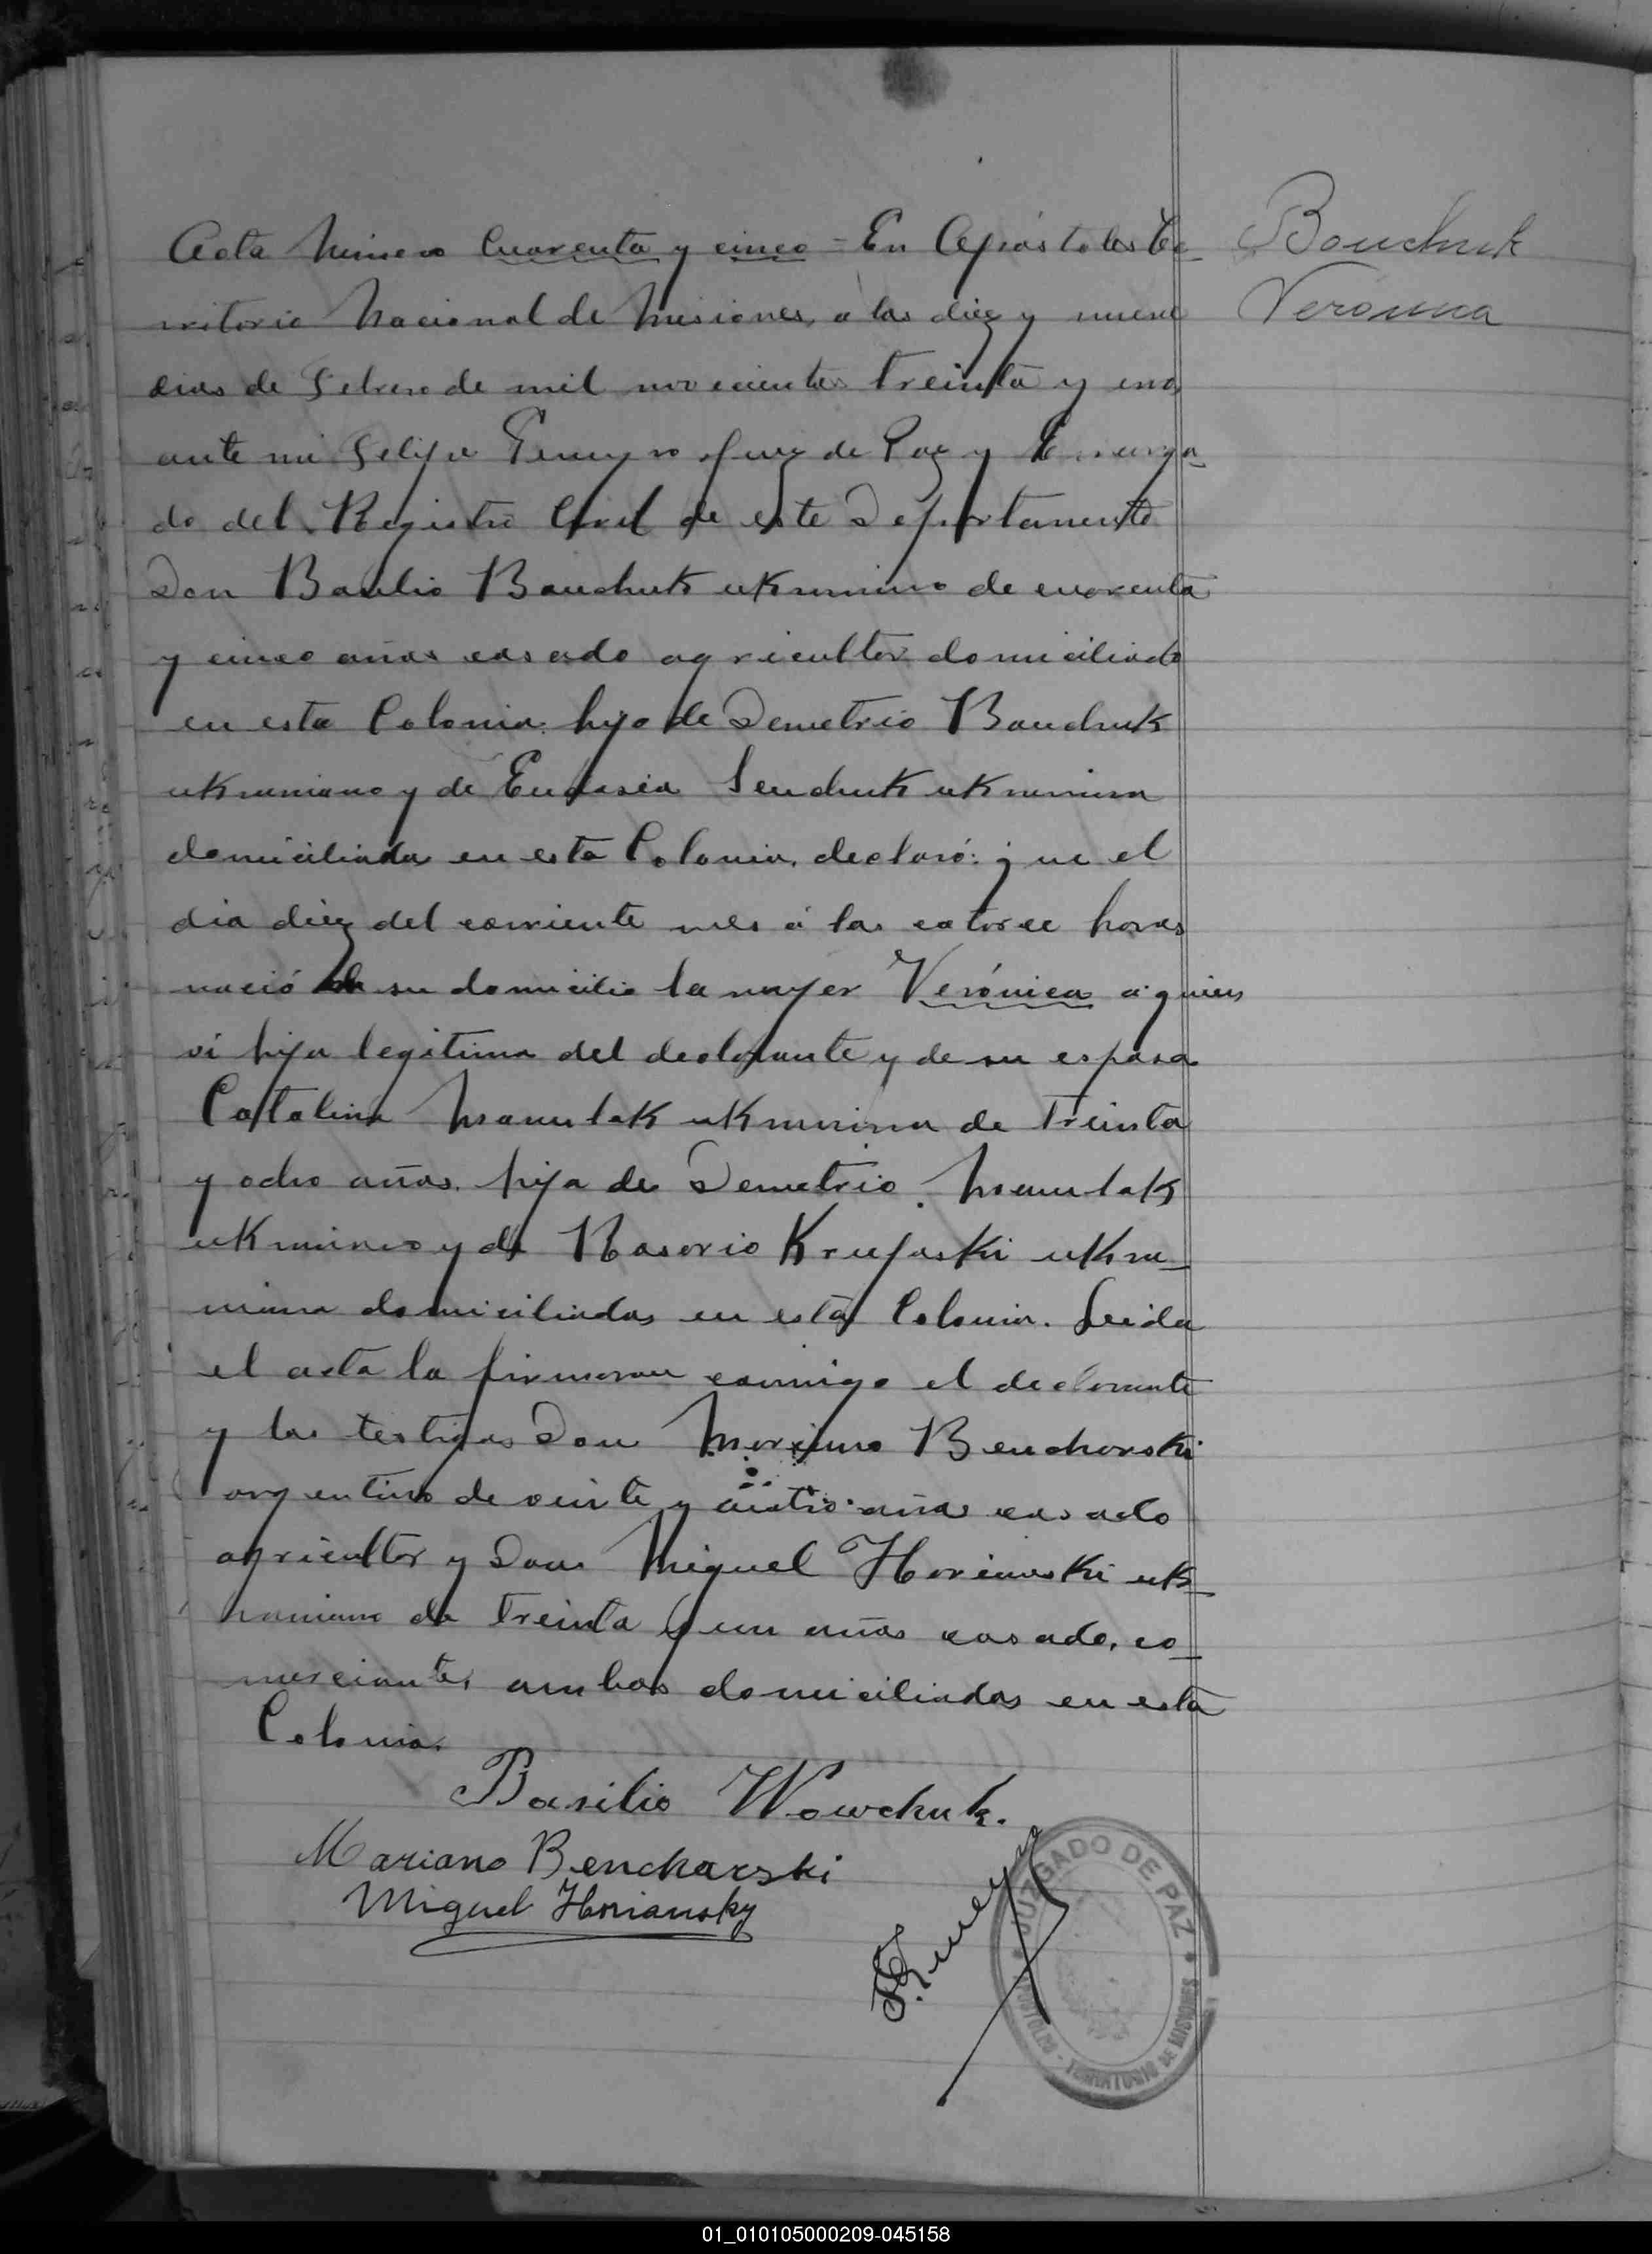 Acta Número Cuarenta y cinco = En Apóstoles Te-
rritorio Nacional de Misiones, a los diez y nueve
dias de Febrero de mil novecientos treinta y uno
ante mi Felipe Juez de Paz y Encarga-
do del Registro Civil de este Departamento
Don Basilio Bauchuk ukraniano de cuarenta
y cinco años casado agricultor domiciliado
en esta Colonia hijo de Demetrio Bauchuk
ukraniano y de Senchuk ukraniana
domiciliados en esta Colonia, declaró: que el
dia diez del corriente mes á las catorce horas
nació en su domicilio la mujer Verónica a quien
vi hija legitima del declarante y de su esposa
Catalina Manulak ukraniana de Treinta
y ocho años. hija de Demetrio Manulak
ukraniano y de Rasorio Krupaski ukra-
niana domiciliados en esta Colonia. Leida
el acta la firmaron conmigo el declarante
y los testigos Don Mariano Bencharski
argentino de veinte y cuatro años casado
agricultor y Don Miguel Horianski uk-
raniano de Treinta y un años casado, co-
merciante, ambos domiciliados en esta
Colonia.
Bouchuk
Veronica
Basilio Wowchuk.
Mariano Bencharski
Miguel Horiansky
JUZGADO DE PAZ
APOSTOLES - TERRITORIO DE MISIONES
01_010105000209-045158